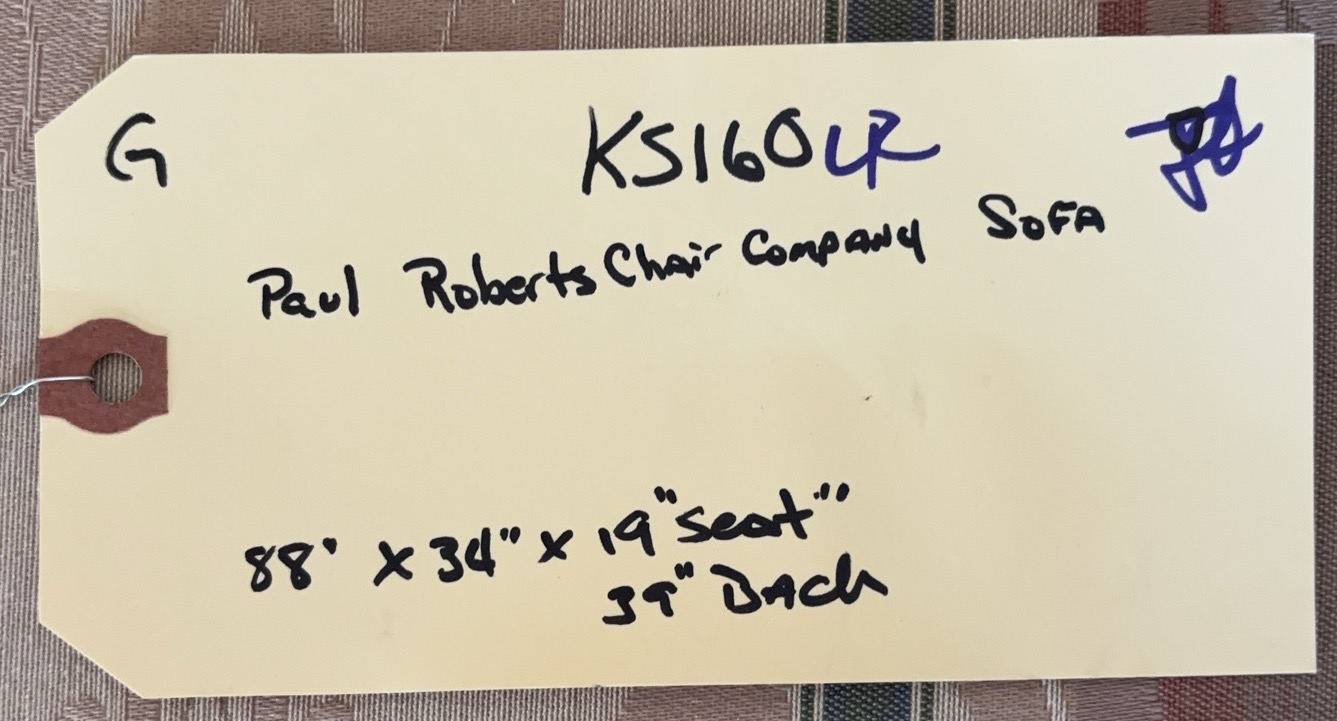 G KS160LR
Paul Roberts Chair Company SOFA
88" x 34" x 19" seat"
39" BAck